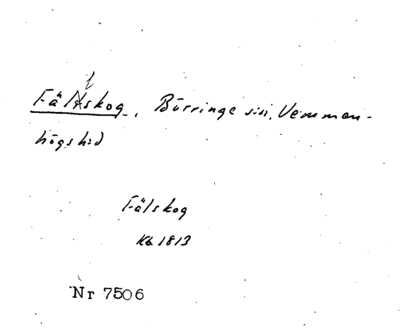 Fältskog, Börringe sn, Vemmen-
högs hd
Fälskog
Kb 1813
Nr 7506